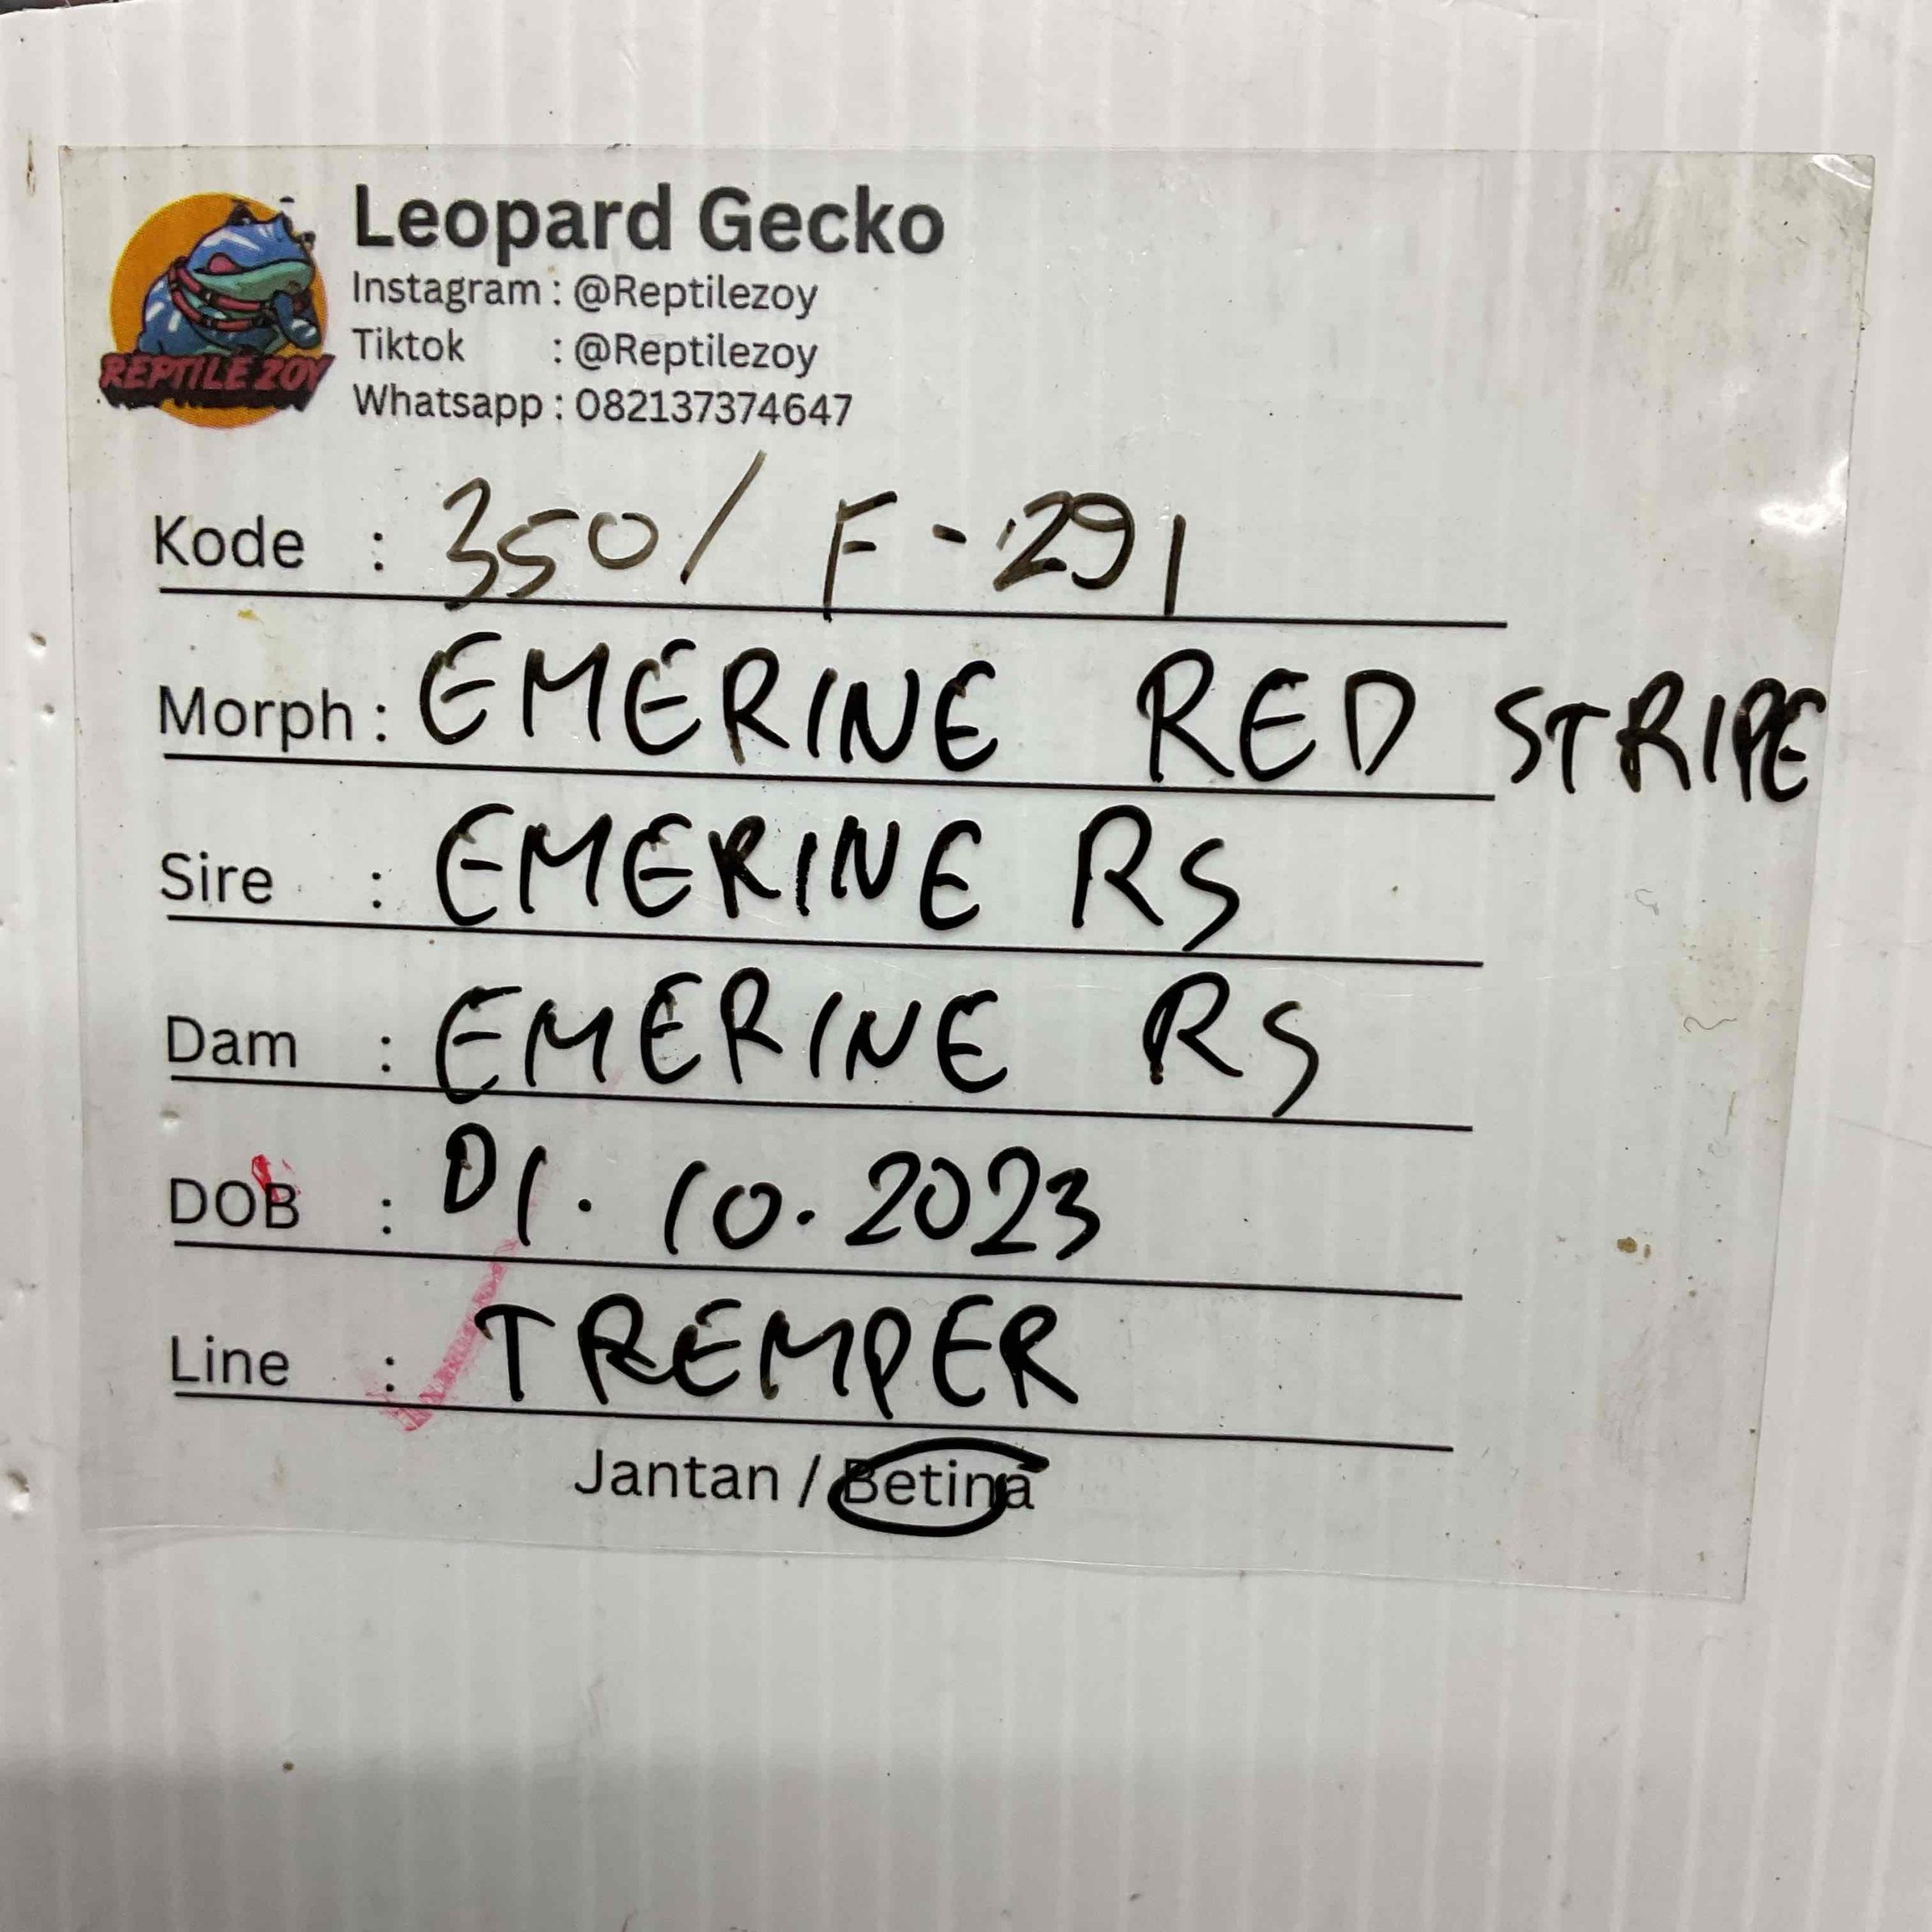 REPTILE ZOY
Leopard Gecko
Instagram : @Reptilezoy
Tiktok : @Reptilezoy
Whatsapp : 082137374647
Kode : 350/ F - 291
Morph : EMERINE RED STRIPE
Sire : EMERINE RS
Dam : EMERINE RS
DOB : 01. 10. 2023
Line : TREMPER
Jantan / Betina